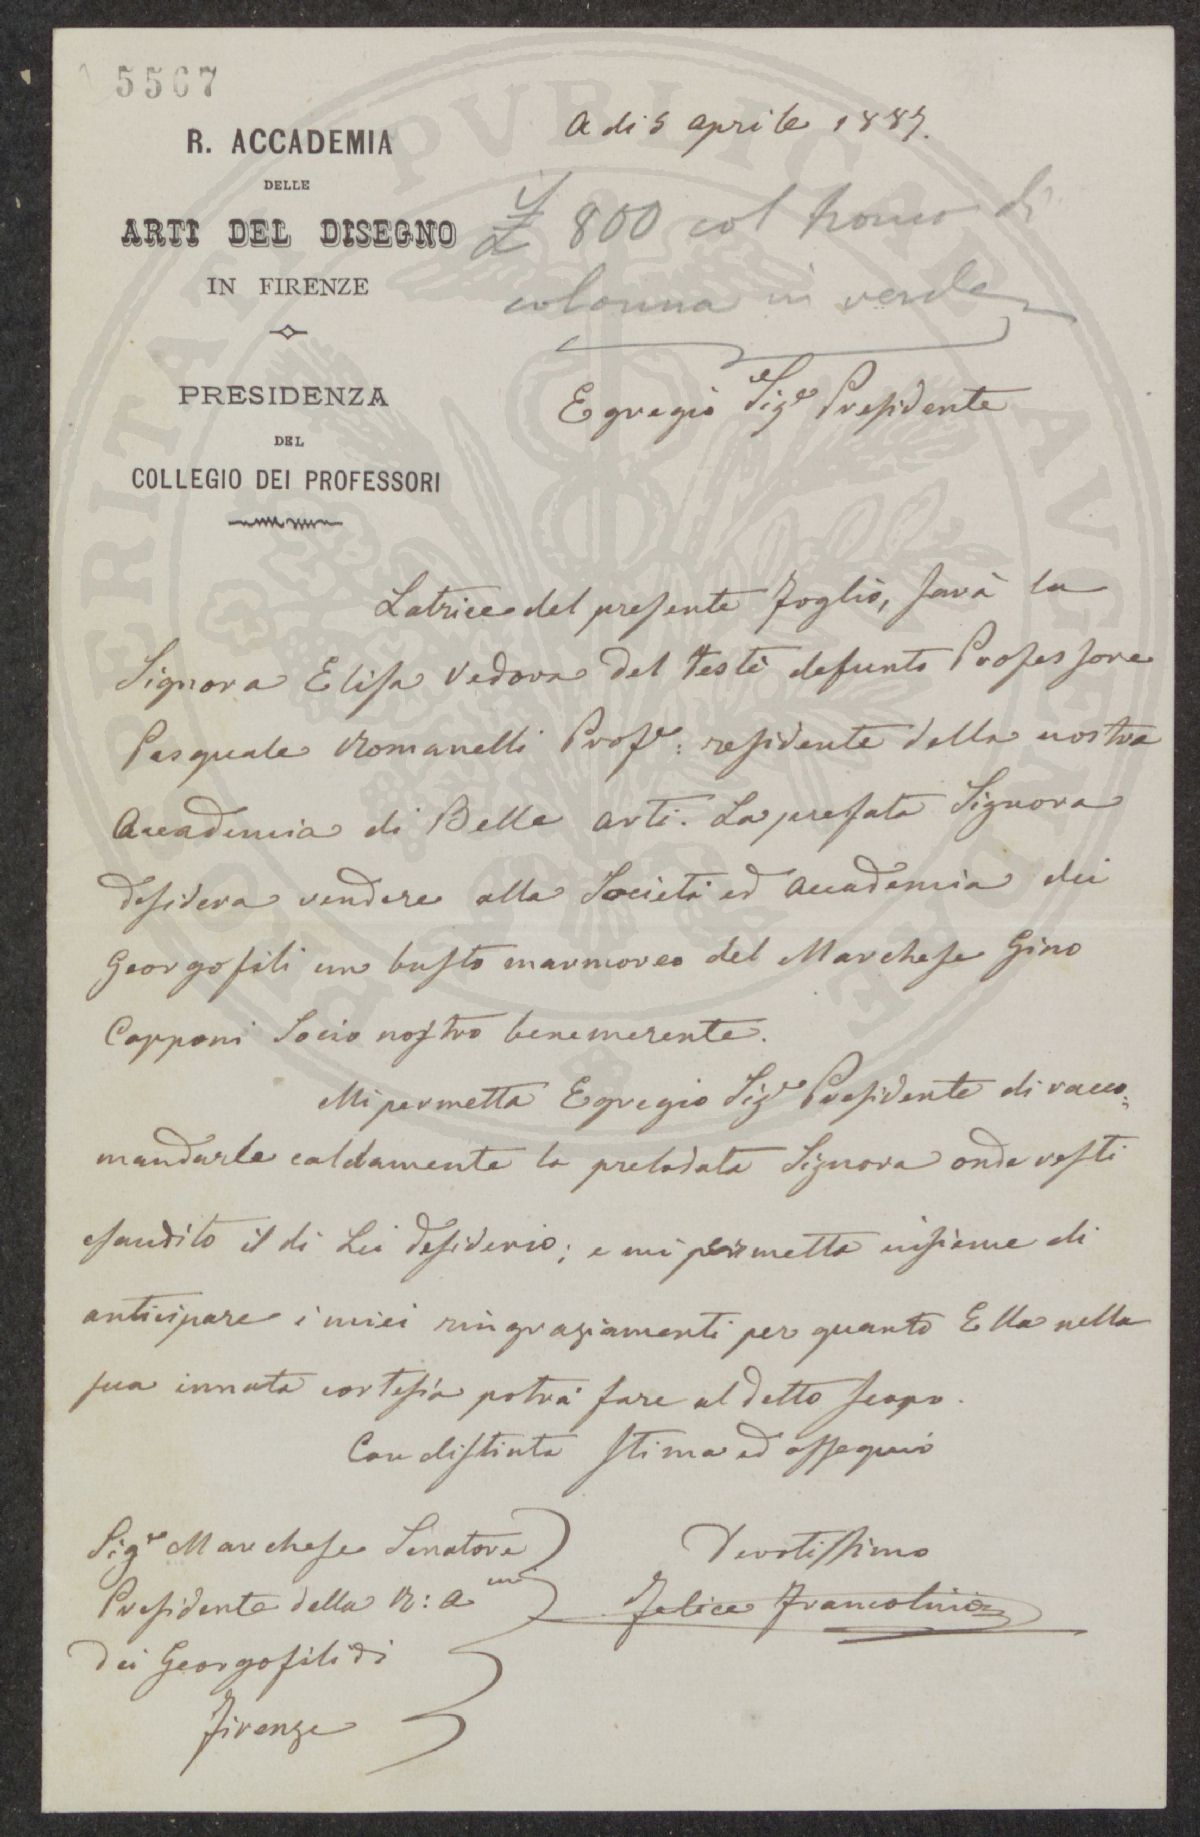 5567
R. ACCADEMIA
DELLE
ARTI DEL DISEGNO
IN FIRENZE
PRESIDENZA
DEL
COLLEGIO DEI PROFESSORI
A di 5 aprile 1887.
£ 800 col tronco di
colonna in verde
Egregio Sig.e Presidente
Latrice del presente foglio, sarà la
Signora Elisa vedova del testè defunto Professore
Pasquale Romanelli Prof.e: residente della nostra
Accademia di Belle Arti. La prefata Signora
desidera vendere alla Società ed Accademia dei
Georgofili un busto marmoreo del Marchese Gino
Capponi Socio nostro benemerente.
Mi permetta Egregio Sig.e Presidente di racco=
mandarle caldamente la prelodata Signora onde resti
esaudito il di Lei desiderio; e mi permetta insieme di
anticipare i miei ringraziamenti per quanto Ella nella
sua innata cortesia potrà fare al detto scopo.
Con distinta stima ed ossequio
Sig.e Marchese Senatore
Presidente della R: A.mia
dei Georgofili di
Firenze
Devotissimo
Felice Francolini
PROSPERITATI PVBLICAE AVGENDAE